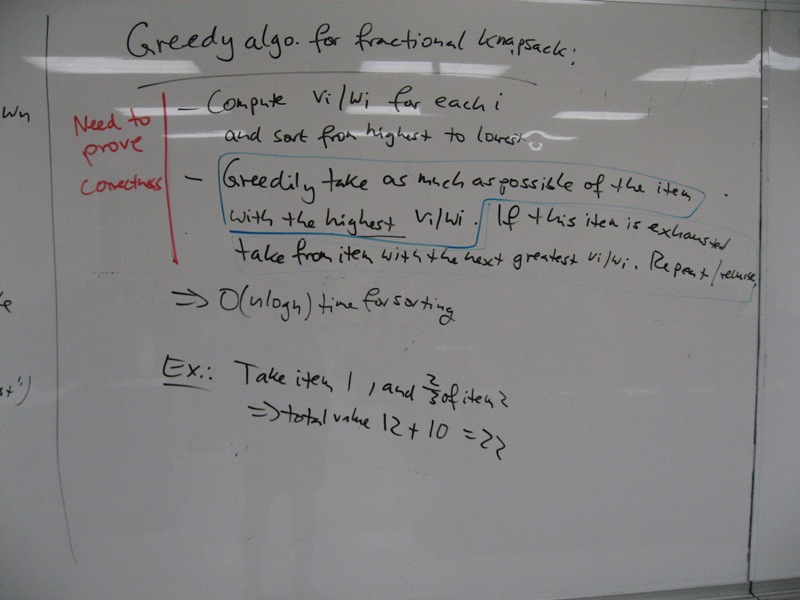 Greedy algo. for fractional knapsack:
wn
Need to
prove
correctness
- Compute vi/wi for each i
and sort from highest to lowest
- Greedily take as much as possible of the item
with the highest vi/wi. If this item is exhausted
take from item with the next greatest vi/wi. Repeat/recurse
=> O(nlogn) time for sorting
st")
Ex.: Take item 1, and 2/3 of item 2
=> total value 12 + 10 = 22